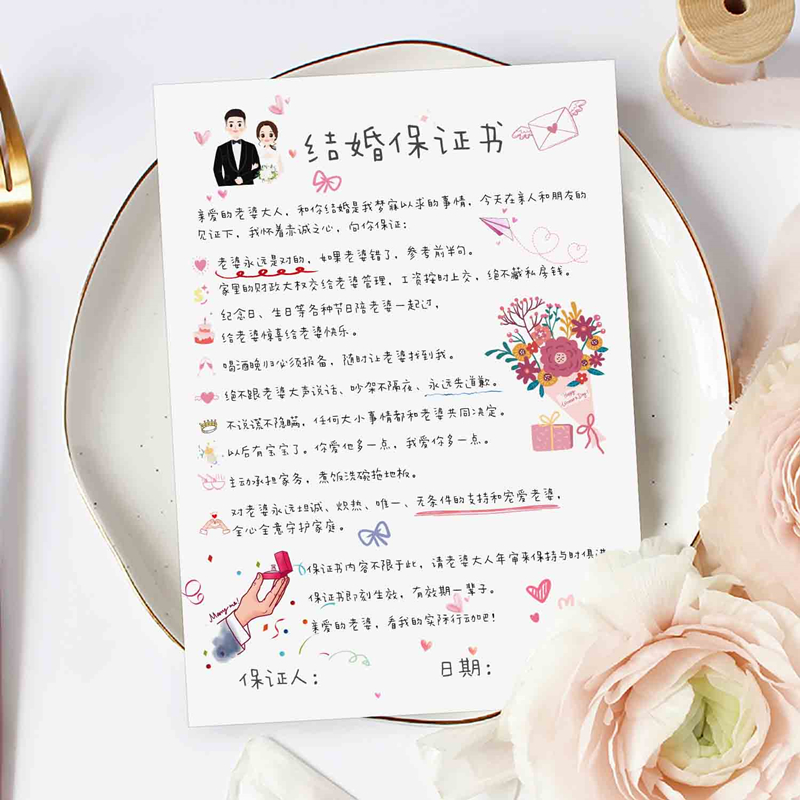 结婚保证书
亲爱的老婆大人，和你结婚是我梦寐以求的事情，今天在亲人和朋友的
见证下，我怀着赤诚之心，向你保证：
老婆永远是对的，如果老婆错了，参考前半句。
家里的财政大权交给老婆管理，工资按时上交，绝不藏私房钱。
纪念日、生日等各种节日陪老婆一起过，
给老婆惊喜给老婆快乐。
喝酒晚归必须报备，随时让老婆找到我。
绝不跟老婆大声说话、吵架不隔夜、永远先道歉。
不说谎不隐瞒，任何大小事情都和老婆共同决定。
以后有宝宝了。你爱他多一点，我爱你多一点。
主动承担家务，煮饭洗碗拖地板。
对老婆永远坦诚、炽热、唯一、无条件的支持和宠爱老婆，
全心全意守护家庭。
保证书内容不限于此，请老婆大人年审来保持与时俱进
保证书即刻生效，有效期一辈子。
Marry me
亲爱的老婆，看我的实际行动吧！
保证人：
日期：